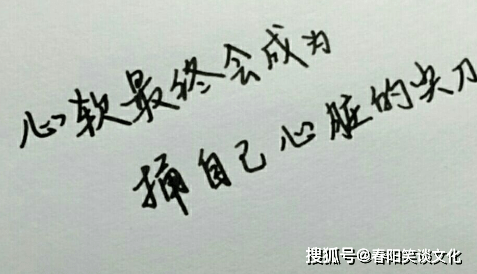 心软最终会成为
捅自己心脏的尖刀
搜狐号@春阳笑谈文化